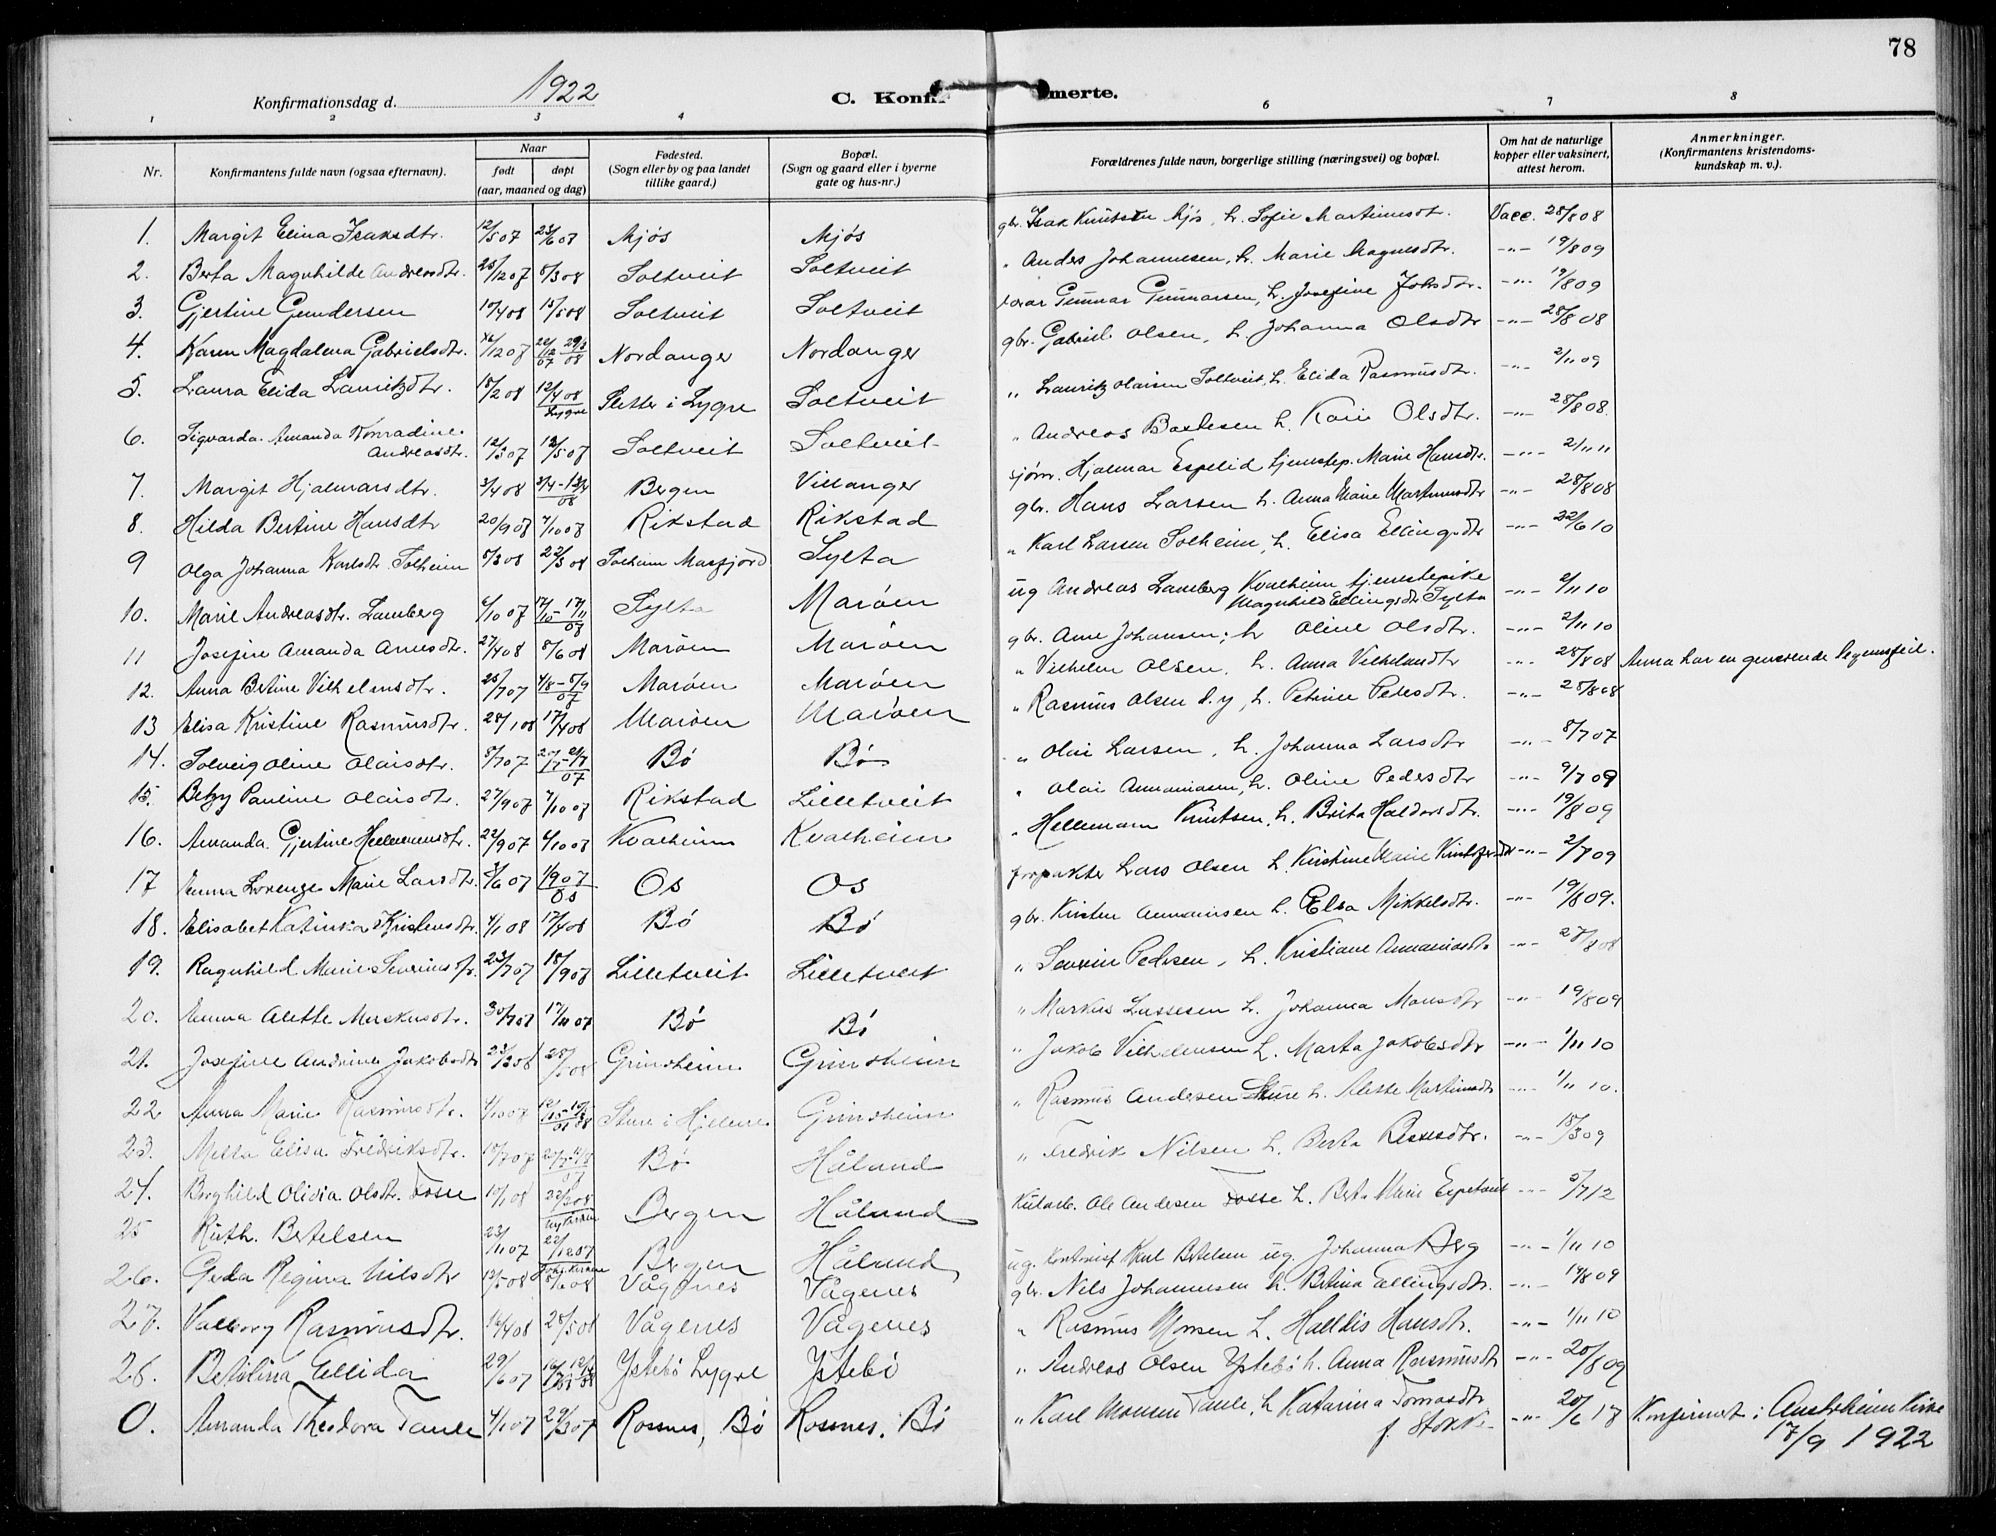 78
Konfirmationsdag d. 1922
C. Konfir merte.
1 2 3 4 6 7 8
Nr. Konfirmantens fulde navn (ogsaa efternavn). Naar født døpt (aar, maaned og dag) Fødested. (Sogn eller by og paa landet tillike gaard.) Bopæl. (Sogn og gaard eller i byerne gate og hus-nr.) Forældrenes fulde navn, borgerlige stilling (næringsvei) og bopæl. Om hat de naturlige kopper eller vaksinert, attest herom. Anmerkninger. (Konfirmantens kristendomskundskap m. v.).
1. Margit Elina Isaksdtr. 12/5 07 23/6 07 Mjøs Mjøs gbr. Isak Knutsen Mjøs, h. Sofie Martinusdtr. Vacc. 28/8 08
2. Berta Magnhilde Andreasdtr. 25/12 07 8/3 08 Soltveit Soltveit " Anders Johannesen, h. Marie Magnusdtr. -"- 19/8 09
3. Gjertine Gundersen 10/4 08 15/5 08 Soltveit Soltveit Gunnar Gunnarsen, h. Josefine Johsdtr. -"- 19/8 09
4. Karen Magdalena Gabrielsdtr. Nordanger Nordanger gbr. Gabriel Olsen, h. Johanna Olsdtr -"- 28/8 08
5. Laura Elida Lauritzdtr. 18/2 08 12/4 08 Lygre Sletten i Lygre Soltveit " Lauritz Olaisen Soltveit, h. Elida Rasmusdtr. -"- 2/11 09
6. Sigvarda Amanda Konradine Andreasdtr. 12/3 07 12/5 07 Soltveit Soltveit " Andreas Bastesen h. Kari Olsdtr. -"- 28/8 08.
7. Margit Hjalmarsdtr. 3/4 08 Bergen Villanger sjøm. Hjalmar Espelid tjenestep. Marie Hansdtr. -"- 2/11 11
8. Hilda Bertine Hansdtr 20/9 07 7/10 07 Rikstad Rikstad gbr. Hans Larsen h. Anna Marie Martinusdtr -"- 28/8 08
9 Olga Johanna Karlsdtr. Solheim 8/3 08 22/3 08 Solheim Masfjord Sylta " Karl Larsen Solheim, h. Elisa Ellingsdtr -"- 22/6 10
10. Marie Andreasdtr. Lamberg 6/10 07 Sylta Marøen ug Andreas Lamberg Kvalheim tjenestepike Magnhild Ellingsdtr Sylta -"- 2/11 10
11 Josefine Amanda Arnesdtr. 27/4 08 8/6 08 Marøen Marøen gbr. Arne Johansen; h Oline Olsdtr. -"- 2/11 10
12. Anna Bertine Vilhelmsdtr. 25/7 07 4/8 - 8/9 07 Marøen Marøen " Vilhelm Olsen. h. Anna Vilhelmdtr -"- 28/8 08 Anna har en generende legemsfeil.
13 Elisa Kristine Rasmusdtr. 28/1 08 17/4 08 Marøen Marøen " Rasmus Olsen d.y, h. Petrine Pedersdtr. -"- 28/8 08
14. Solveig Oline Olaisdtr. 8/7 07 Bø Bø " Olai Larsen, h. Johanna Larsdtr -"- 8/7 07
15. Betzy Pauline Olaisdtr. 27/9 07 7/10 07 Rikstad Lilletveit " Olai Annaniasen, h. Oline Pedersdtr -"- 9/7 09
16. Amanda Gjertine Hellemensdtr. 22/9 07 6/10 07 Kvalheim Kvalheim " Hellemann Knutsen, h. Brita Haldorsdtr. -"- 19/8 09
17 Emma Lorenze Marie Larsdtr. 3/6 07 Os Os Os forpakter Lars Olsen h. Kristine Marie Kristofersdtr -"- 2/7 09
18. Elisabet Katinka Kristensdtr. 4/1 08 17/4 08 Bø Bø gbr. Kristen Annanisen h. Elsa Mikkelsdtr. -"- 19/8 09.
19. Ragnhild Marie Severinsdtr. 23/7 07 18/9 07 Lilletveit Lilletveit " Severin Pedersen, h. Kristiane Annaniasdtr -"- 28/8 08
20. Emma Alette Markusdtr. 30/7 07 17/11 07 Bø Bø " Markus Lassesen h. Johanna Monsdtr -"- 19/8 09
21. Josefine Andrine Jakobsdtr 23/3 08 28/5 08 Grimsheim Grimsheim " Jakob Vilhelmsen h. Marta Jakobsdtr -"- 1/11 10
22 Anna Marie Rasmusdtr. 4/10 07 Sture i Hjelme Grimsheim " Rasmus Andersen Sture h. Alette Martinusdtr -"- 1/11 10.
23. Metta Elisa Fredriksdtr. 10/7 07 Bø Håland " Fredrik Nilsen h. Berta Lassesdtr. -"- 18/3 09
24. Borghild Olivia Olsdtr. Fosse 10/1 08 22/3 08 Nykirken Bergen Håland Kularb. Ole Andersen Fosse h. Berta Marie Espetveit -"- 5/7 12
25 Ruth Bertelsen 23/11 07 22/12 07 Joh.s Kirken Bergen Håland ug. kontorist Karl Bertelsen ug. Johanna Berg -"- 1/11 10
26. Gerda Regina Nilsdtr 12/5 08 8/6 08 Vågenes Vågenes gbr. Nils Johannesen h. Betina Ellingsdtr. -"- 19/8 09
27. Valborg Rasmusdtr. 16/4 08 28/5 08 Vågenes Vågenes " Rasmus Monsen h. Halldis Hansdtr. -"- 1/11 10
28. Betolina Ellida 29/6 07 Ystebø Lygre Ystebø " Andreas Olsen Ystebø h. Anna Rasmusdtr -"- 20/8 09
0. Amanda Theodora Taule 4/1 07 29/3 07 Rosnes, Bø Rosnes, Bø " Karl Monsen Taule, h Katarina Tomasdtr f. Stokke -"- 20/6 18 Konfirmert i Austrheim Kirke
17/9 1922